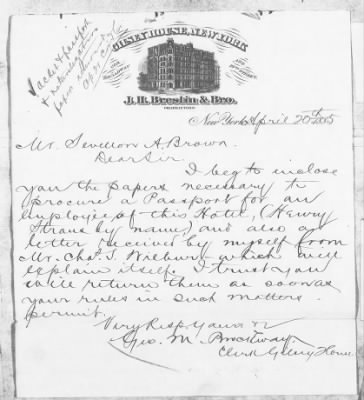 GILSEY HOUSE, NEW YORK
BROADWAY
J. H. Breslin & Bro.
PROPRIETORS
New York April 20th 1885
Mr. Sevellon A. Brown.
Dear Sir.
I beg to inclose
you the papers necessary to
procure a Passport for an
employee of this Hotel, (Henry
Straus by name) and also a
letter received by myself from
Mr. Chas. T. Wilbur which will
explain itself. I trust you
will return them as soon as
your rules in such matters
permit.
Very Resp. Yours
Geo. M. Brockway.
Clerk Gilsey House